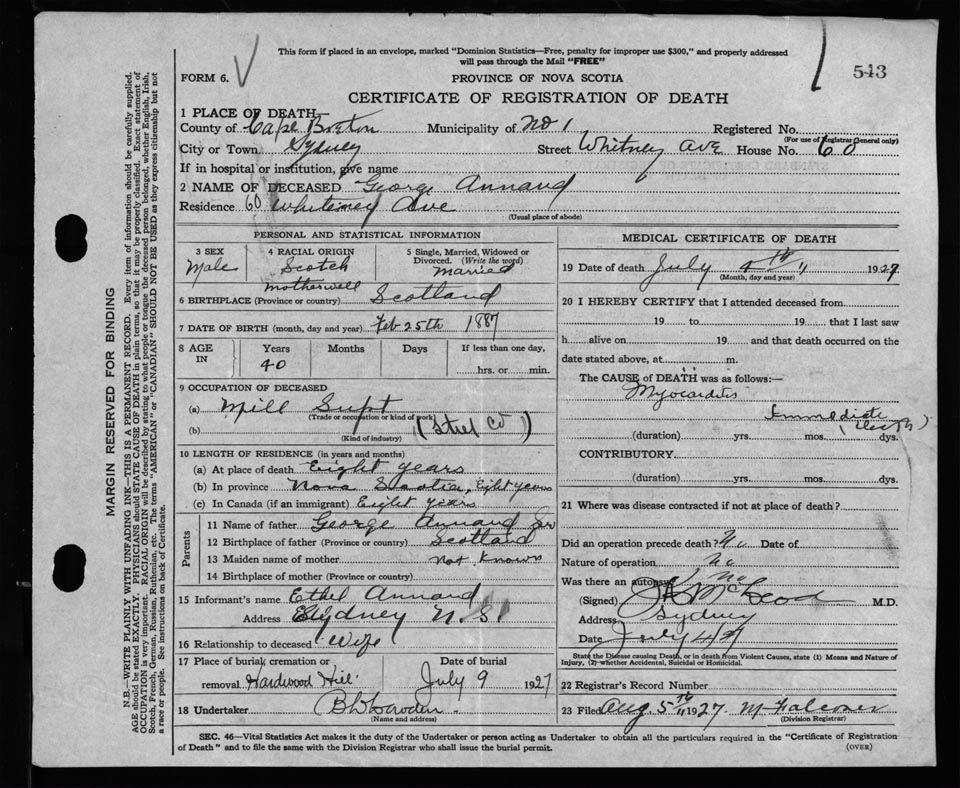 This form if placed in an envelope, marked "Dominion Statistics—Free, penalty for improper use $300," and properly addressed
will pass through the Mail "FREE"
543
FORM 6.
PROVINCE OF NOVA SCOTIA
CERTIFICATE OF REGISTRATION OF DEATH
1 PLACE OF DEATH
County of Cape Breton Municipality of No 1 Registered No.
(For use of Registrar General only)
City or Town Sydney Street Whitney Ave House No. 60
If in hospital or institution, give name
2 NAME OF DECEASED George Annand
Residence 60 Whiteney Ave
(Usual place of abode)
PERSONAL AND STATISTICAL INFORMATION
3 SEX
Male
4 RACIAL ORIGIN
Scotch
5 Single, Married, Widowed or
Divorced. (Write the word)
married
6 BIRTHPLACE (Province or country) Motherwell Scotland
7 DATE OF BIRTH (month, day and year) Feb 25th 1887
8 AGE IN
Years
40
Months
Days
If less than one day,
hrs. or min.
9 OCCUPATION OF DECEASED
(a) Mill Supt
(Trade or occupation or kind of work)
(b) (Steel Co)
(Kind of industry)
10 LENGTH OF RESIDENCE (in years and months)
(a) At place of death Eight years
(b) In province Nova Scotia, Eight years
(c) In Canada (if an immigrant) Eight years
Parents
11 Name of father George Annand Sr
12 Birthplace of father (Province or country) Scotland
13 Maiden name of mother not known
14 Birthplace of mother (Province or country)
15 Informant's name Ethel Annand
Address Sydney N.S.
16 Relationship to deceased Wife
17 Place of burial, cremation or
removal Hardwood Hill
Date of burial
July 9 1927
18 Undertaker
(Name and address)
MEDICAL CERTIFICATE OF DEATH
19 Date of death July 4th 1927
(Month, day and year)
20 I HEREBY CERTIFY that I attended deceased from
19 to 19 that I last saw
h alive on 19 and that death occurred on the
date stated above, at m.
The CAUSE of DEATH was as follows:—
Myocarditis
Immediate
(death)
(duration) yrs. mos. dys.
CONTRIBUTORY
(duration) yrs. mos. dys.
21 Where was disease contracted if not at place of death?
Did an operation precede death? No Date of
Nature of operation no
Was there an autopsy no
(Signed) McLeod M.D.
Address Sydney
Date July 4/27
State the Disease causing Death, or in death from Violent Causes, state (1) Means and Nature of
Injury, (2) whether Accidental, Suicidal or Homicidal.
22 Registrar's Record Number
23 Filed Aug 5th 1927 M Falconer
(Division Registrar)
SEC. 46—Vital Statistics Act makes it the duty of the Undertaker or person acting as Undertaker to obtain all the particulars required in the "Certificate of Registration
of Death" and to file the same with the Division Registrar who shall issue the burial permit.
(OVER)
MARGIN RESERVED FOR BINDING
N.B.—WRITE PLAINLY WITH UNFADING INK—THIS IS A PERMANENT RECORD. Every item of information should be carefully supplied.
AGE should be stated EXACTLY. PHYSICIANS should STATE CAUSE OF DEATH in plain terms, so that it may be properly classified. Exact statement of
OCCUPATION is very important. RACIAL ORIGIN will be described by stating to what people or tongue the deceased person belonged, whether English, Irish,
Scotch, French, German, Russian, Ruthenian, etc. The terms "AMERICAN" or "CANADIAN" SHOULD NOT BE USED as they express citizenship but not
a race or people. See instructions on back of Certificate.